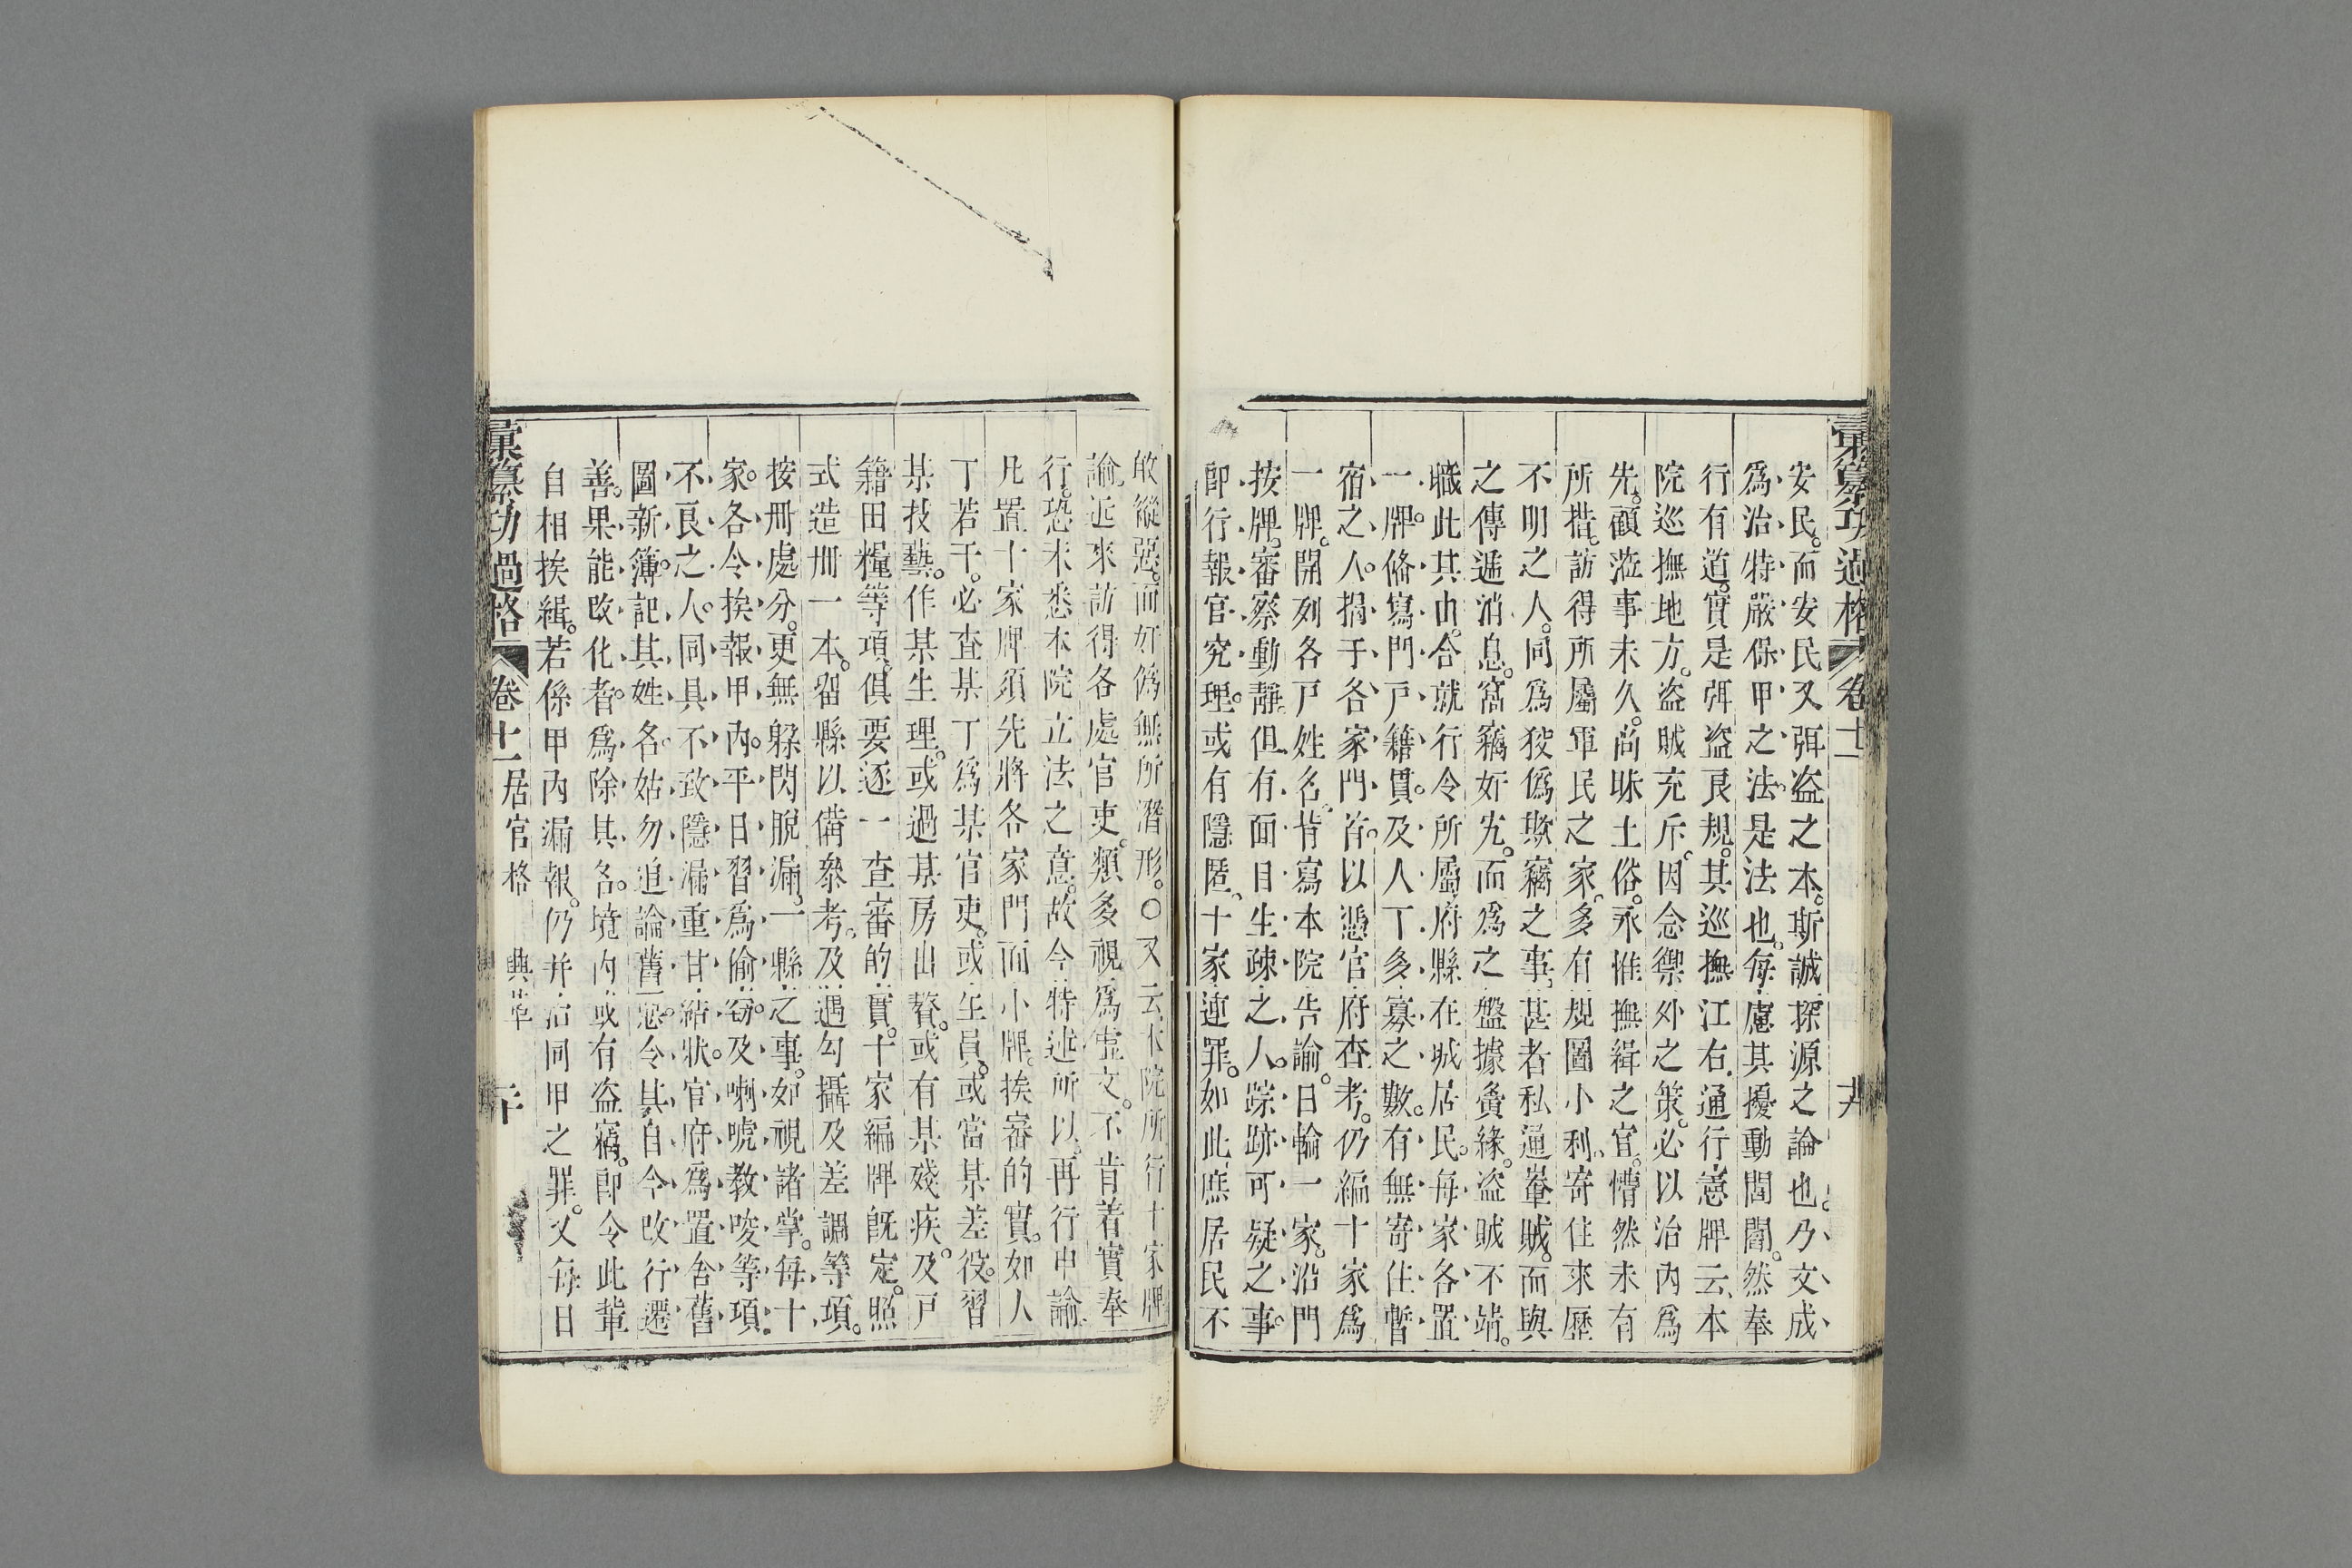 彙纂功過格 卷十一 十九
安民。而安民又弭盗之本。斯誠探源之論也。乃文成
爲治特嚴保甲之法。是法也。每慮其擾動閭閻。然奉
行有道。實是弭盗良規。其巡撫江右。通行憲牌云。本
院巡撫地方。盗賊充斥。因念禦外之策。必以治內爲
先。顧涖事未久。尚昧土俗。永惟撫緝之官。懵然未有
所措。訪得所屬軍民之家。多有規圖小利。寄住來歷
不明之人。同爲狡僞欺竊之事。甚者私通輋賊。而與
之傳遞消息。窩竊奸宄。而爲之盤據夤緣。盗賊不靖。
職此其由。合就行令所屬府縣在城居民。每家各置
一牌。俻寫門戸籍貫。及人丁多寡之數。有無寄住暫
宿之人。揭于各家門首。以憑官府查考。仍編十家爲
一牌。開列各戸姓名。背寫本院告諭。日輪一家。沿門
按牌。審察動靜。但有面目生疎之人。踪跡可疑之事。
卽行報官究理。或有隱匿。十家連罪。如此。庶居民不
敢縱惡。而奸僞無所潛形。○又云。本院所行十家牌
諭。近來訪得各處官吏。類多視爲虛文。不肯着實奉
行。恐未悉本院立法之意。故今特述所以。再行申諭。
凡置十家牌。須先將各家門面小牌。挨審的實。如人
丁若干。必查某丁爲某官吏。或生員。或當某差役。習
某技藝。作某生理。或過某房出贅。或有某殘疾。及戸
籍田糧等項。俱要逐一查審的實。十家編牌旣定。照
式造冊一本。留縣以備叅考。及遇勾攝及差調等項。
按冊處分。更無躲閃脫漏。一縣之事。如視諸掌。每十
家。各令挨報甲內。平日習爲偷竊。及喇唬教唆等項。
不良之人。同具不致隱漏重甘結狀。官府爲置舍舊
圖新簿。記其姓名。姑勿追論舊惡。令其自今改行遷
善。果能改化者。爲除其名。境內或有盗竊。卽令此輩
自相挨緝。若係甲內漏報。仍并治同甲之罪。又每日
彙纂功過格 卷十一 居官格 興革 二十